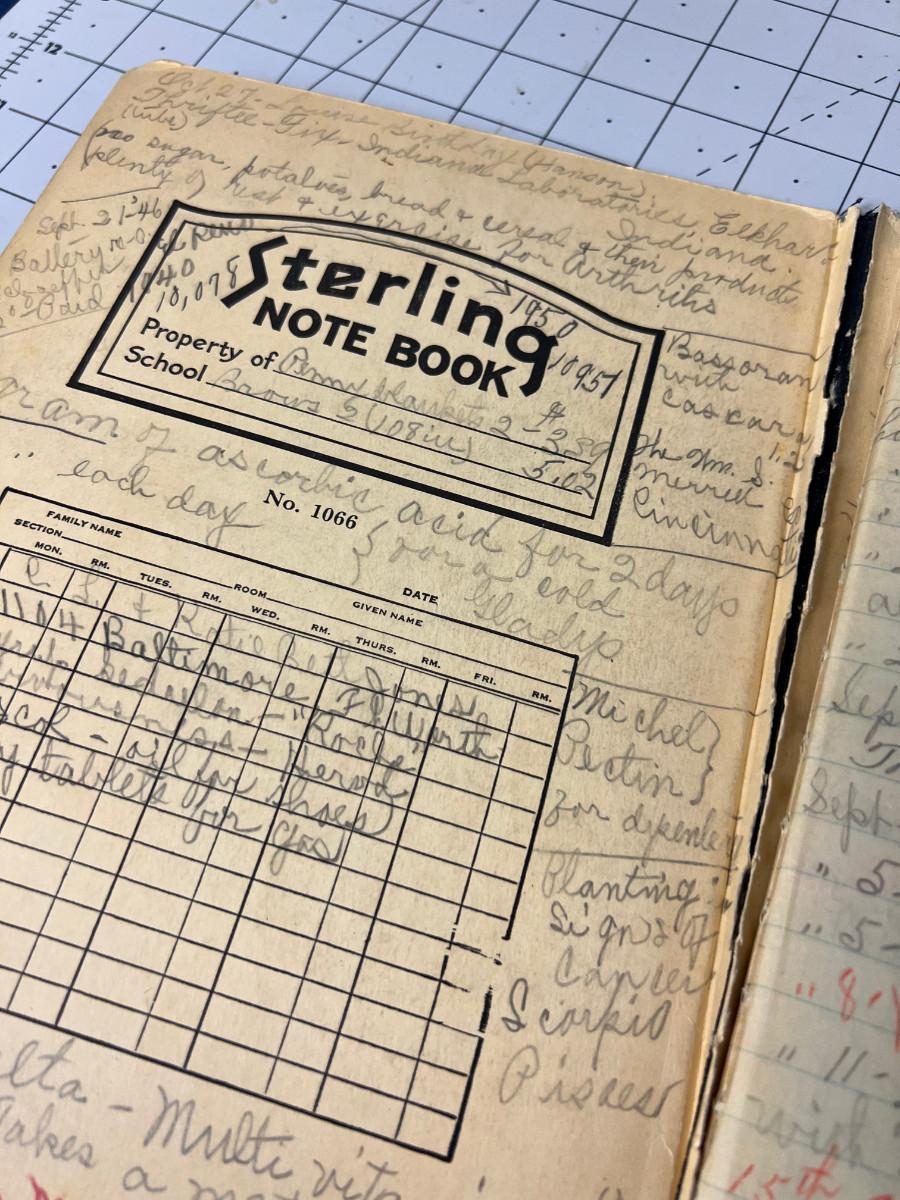 12
11
Oct. 27. Louise Birthday (Hanson)
Thriftee-Fix-Indiana Laboratories, Elkhart
(tube) Indiana
(no sugar, potatoes, bread & cereal & their products
plenty of rest & exercise for Arthritis
Sept. 21-46
Battery
Paid 1040
10,078
1950
10957
Sterling
NOTE BOOK
Property of Penny blankets 2
School Brows 2 (108in)
5,02
Bassoran
with
cascara
The Wm. S.
Merrell
Cincinnati
gram of ascorbic acid for 2 days
" each day for a cold
Gladys.
No. 1066
FAMILY NAME GIVEN NAME
SECTION ROOM DATE
MON. RM. TUES. RM. WED. RM. THURS. RM. FRI. RM.
Katie Bell Jones
1104 Baltimore Ft Worth
"Roche"
oil for shoes)
tablets for gas
Michel }
Pectin }
for
Planting:
Signs of
Cancer
Scorpio
Pisces
Multi vita
Takes a
Sept
" 5-
" 5-
" 8-
" 11-
with
15th